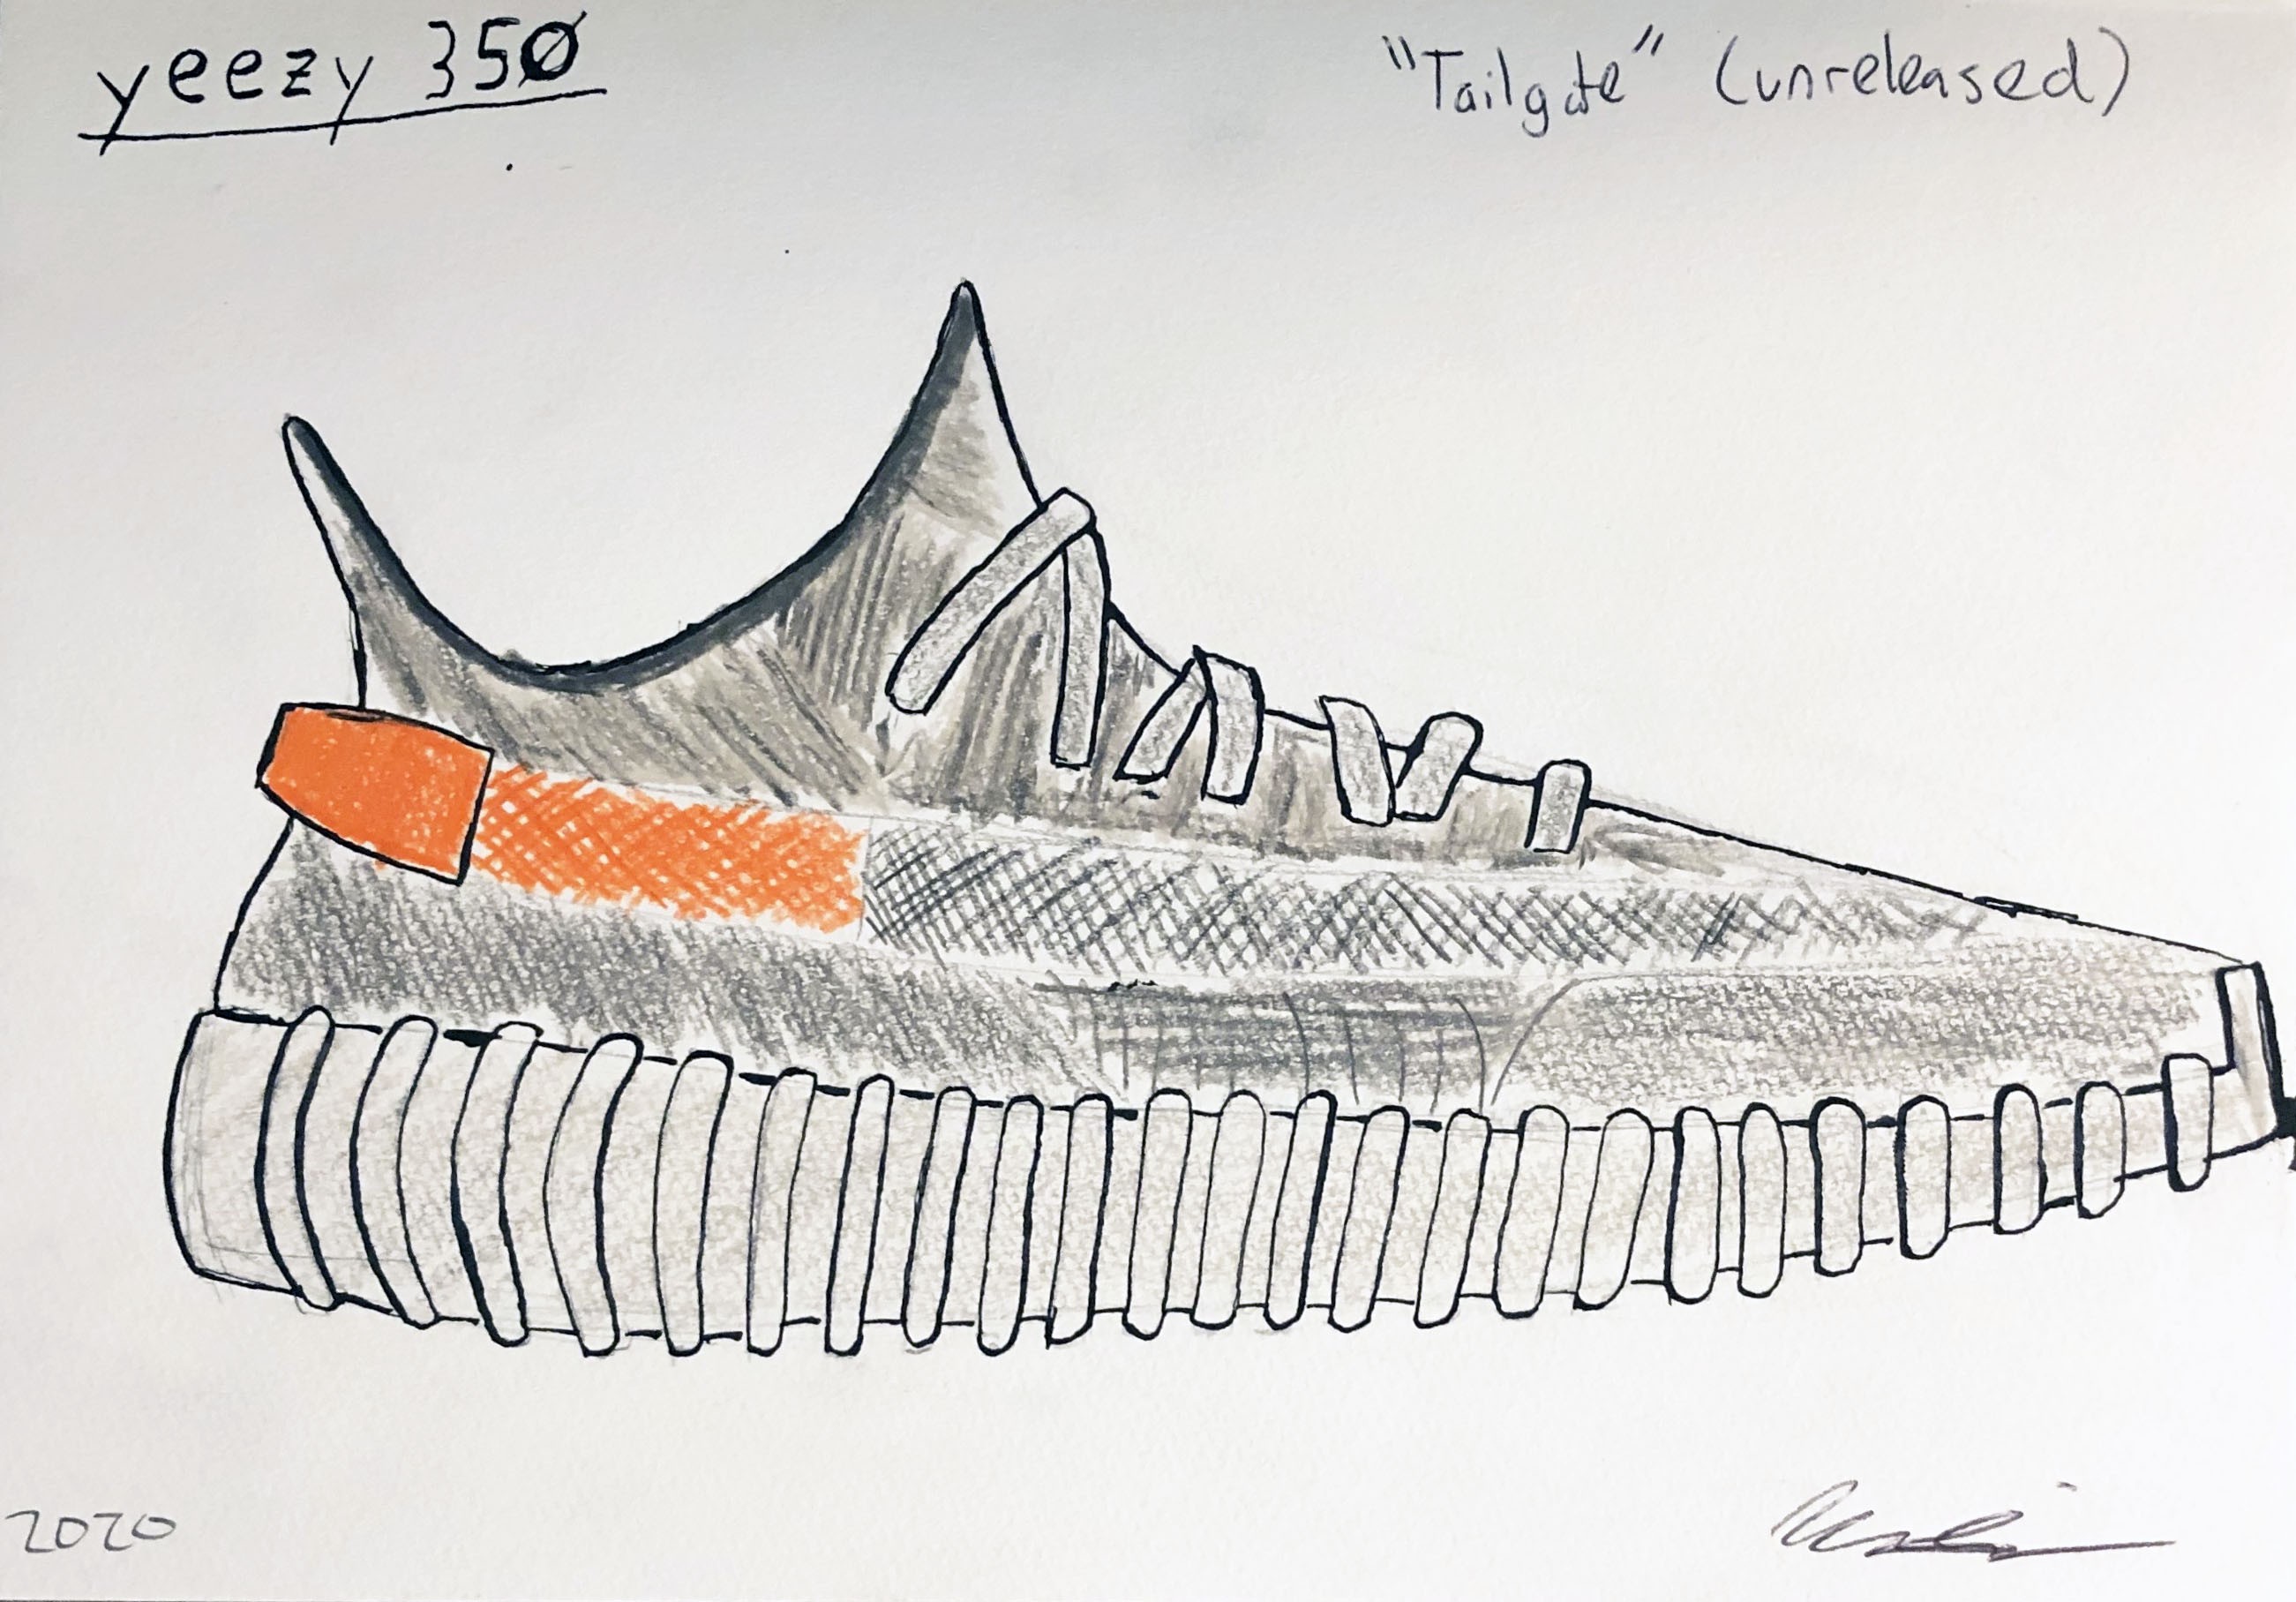 yeezy 350
"Tailgate" (unreleased)
2020